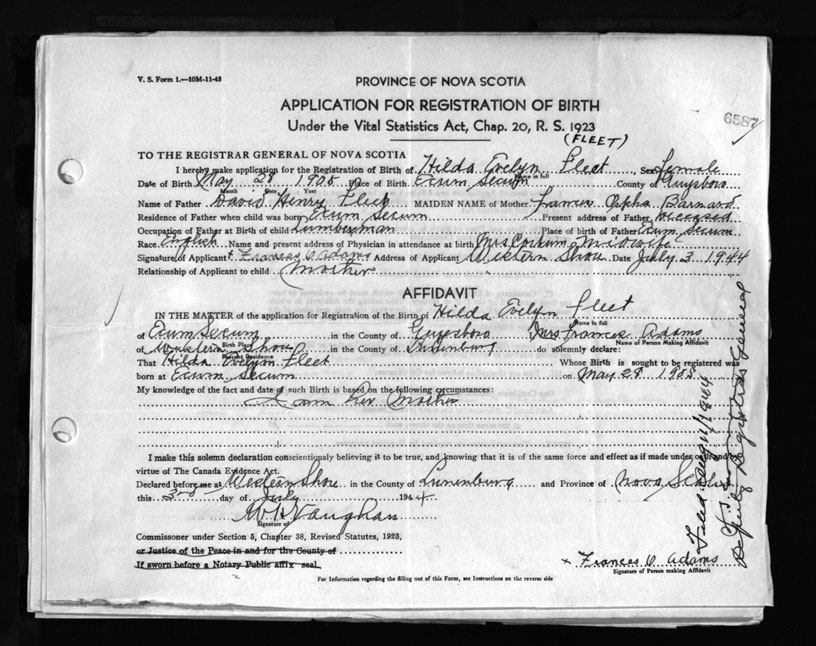 V. S. Form 1.—10M-11-43
PROVINCE OF NOVA SCOTIA
APPLICATION FOR REGISTRATION OF BIRTH
6587
Under the Vital Statistics Act, Chap. 20, R. S. 1923
(FLEET)
TO THE REGISTRAR GENERAL OF NOVA SCOTIA
I hereby make application for the Registration of Birth of Hilda Evelyn Fleet Sex Female
Name in full
Date of Birth May 28 1905 Place of Birth Ecum Secum County of Guysboro
Month Date Year
Name of Father David Henry Fleet MAIDEN NAME of Mother Frances Barnard
Residence of Father when child was born Ecum Secum Present address of Father Deceased
Occupation of Father at Birth of child Lumberman Place of birth of Father Ecum Secum
Race English Name and present address of Physician in attendance at birth Mrs Corkum Midwife
Signature of Applicant Frances O Adams Address of Applicant Western Shore Date July 3 1944
Relationship of Applicant to child Mother
AFFIDAVIT
IN THE MATTER of the application for Registration of the Birth of Hilda Evelyn Fleet
Name in full
of Ecum Secum in the County of Guysboro Mrs Frances Adams
Birth Place Name of Person Making Affidavit
of Western Shore in the County of Lunenburg do solemnly declare:
Residence
That Hilda Evelyn Fleet Whose Birth is sought to be registered was
born at Ecum Secum on May 28 1905
My knowledge of the fact and date of such Birth is based on the following circumstances:
I am her Mother
I make this solemn declaration conscientiously believing it to be true, and knowing that it is of the same force and effect as if made under oath and by
virtue of The Canada Evidence Act.
Declared before me at Western Shore in the County of Lunenburg and Province of Nova Scotia
this 3rd day of July 1944.
Vaughan
Signature of
Commissioner under Section 5, Chapter 38, Revised Statutes, 1923,
or Justice of the Peace in and for the County of
If sworn before a Notary Public affix seal.
x Frances O Adams
Signature of Person making Affidavit
For Information regarding the filling out of this Form, see Instructions on the reverse side
Deputy Registrar General